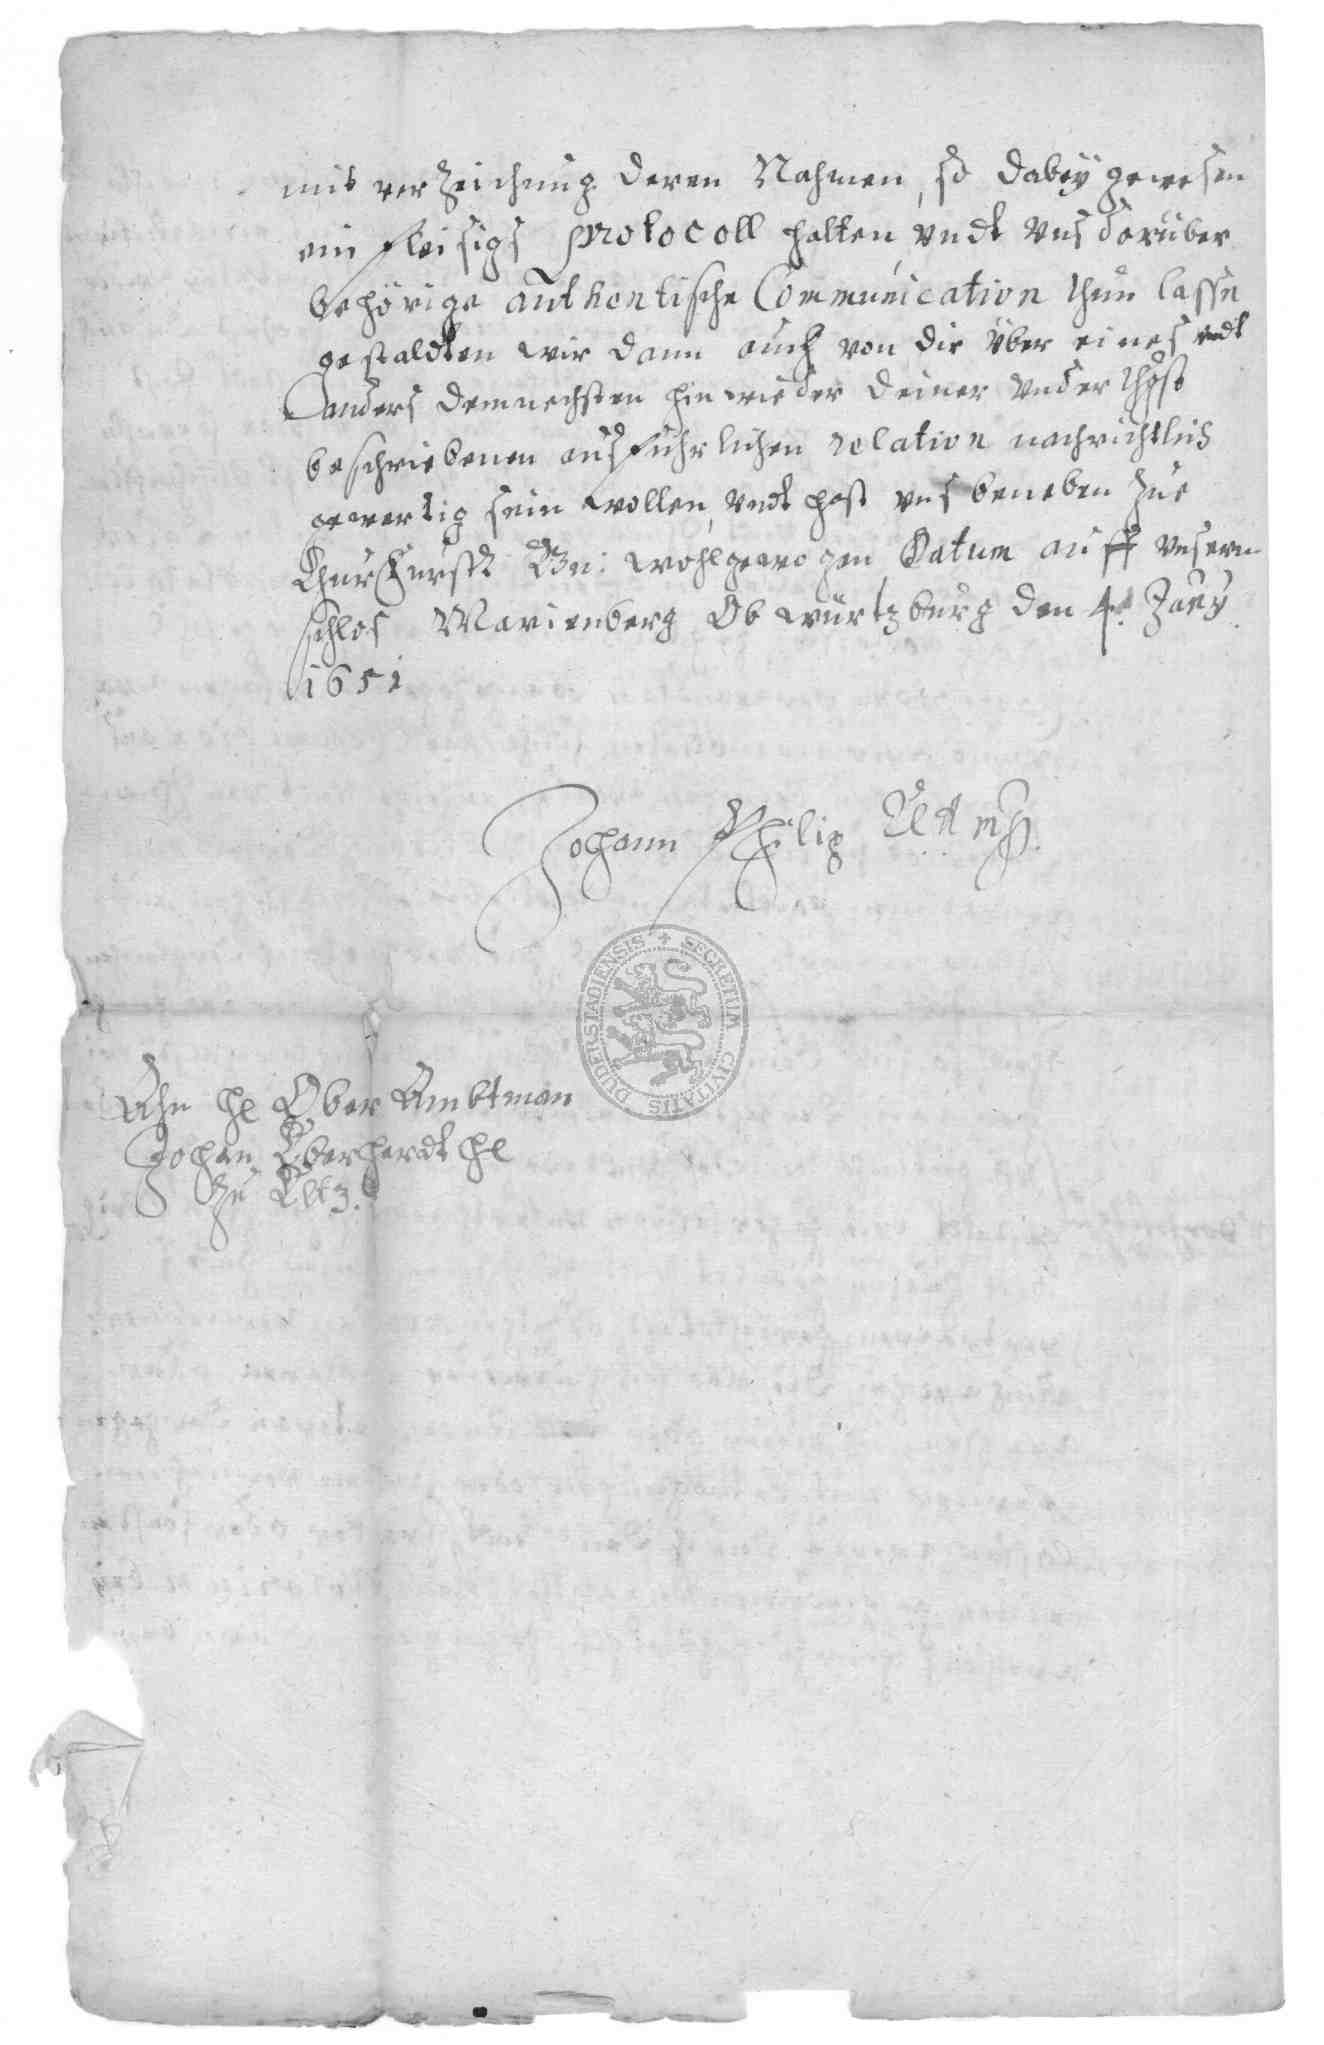 mit verzeichnug deren Nahmen, so dabeÿ gewesen
ein fleisigs protocoll halten, vndt vns darüber
behörige authentische Communication thun lassen
gestaldten wir dann auch von dir über eines vndt
anders demnechsten hinwieder deiner vnder
beschriebenen ausführlichen relation nachrichtlich
gewertig sein wollen, vndt hast vns beneben zue
Churfürstl Gn: wohlgewogen Datum auff vnserm
schlos Marienberg Ob würtzburg den 4t
1651
Johann Philip
SECRETUM CIVITATIS DUDERSTADIENSIS
Ahn H Ober Ambtman
Johan Eberhardt H
Zu Eltz.